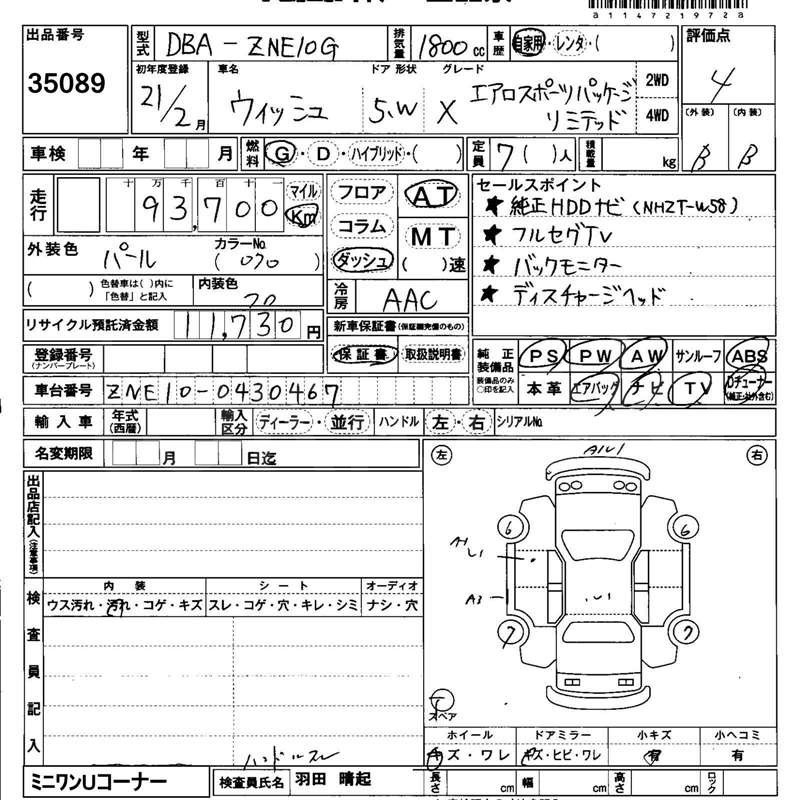 a 1 1 4 7 2 1 9 7 2 8 a
出品番号
35089
型式 DBA-ZNE10G
排気量 1800 cc
車歴 自家用・レンタ・( )
評価点
4
初年度登録 車名 ドア 形状 グレード
21/2月 ウィッシュ 5.W X エアロスポーツパッケージ
リミテッド
2WD
4WD
(外装) (内装)
B B
車検 年 月
燃料 G・D・ハイブリッド・( )
定員 7( )人
積載量 kg
走行 十万千百十一
93,700
マイル
Km
外装色 パール
カラーNo. (070)
( ) 色替車は( )内に「色替」と記入
内装色 70
リサイクル預託済金額 11,730円
フロア
コラム
ダッシュ
AT
MT
( )速
冷房 AAC
新車保証書(保証継続完備のもの)
保証書 取扱説明書
セールスポイント
★ 純正HDDナビ (NHZT-W58)
★ フルセグTV
★ バックモニター
★ ディスチャージヘッド
純正装備品
装備品のみ○印を記入
PS PW AW サンルーフ ABS
本革 エアバッグ ナビ TV Dチューナー
(純正以外含む)
登録番号
(ナンバープレート)
車台番号 ZNE10-0430467
輸入車 年式(西暦) 輸入区分 ディーラー・並行 ハンドル 左・右 シリアルNo.
名変期限 月 日迄
出品店記入(注意事項)
検査員記入
内装 シート オーディオ
ウス汚れ・汚れ・コゲ・キズ スレ・コゲ・穴・キレ・シミ ナシ・穴
ハンドルスレ
左 右
A1U1
6 6
A1
U1
A3
.U1
7 7
T
スペア
ホイール ドアミラー 小キズ 小ヘコミ
キズ・ワレ キズ・ヒビ・ワレ 有 有
ミニワンUコーナー 検査員氏名 羽田 晴起
長さ cm 幅 cm 高さ cm ロック